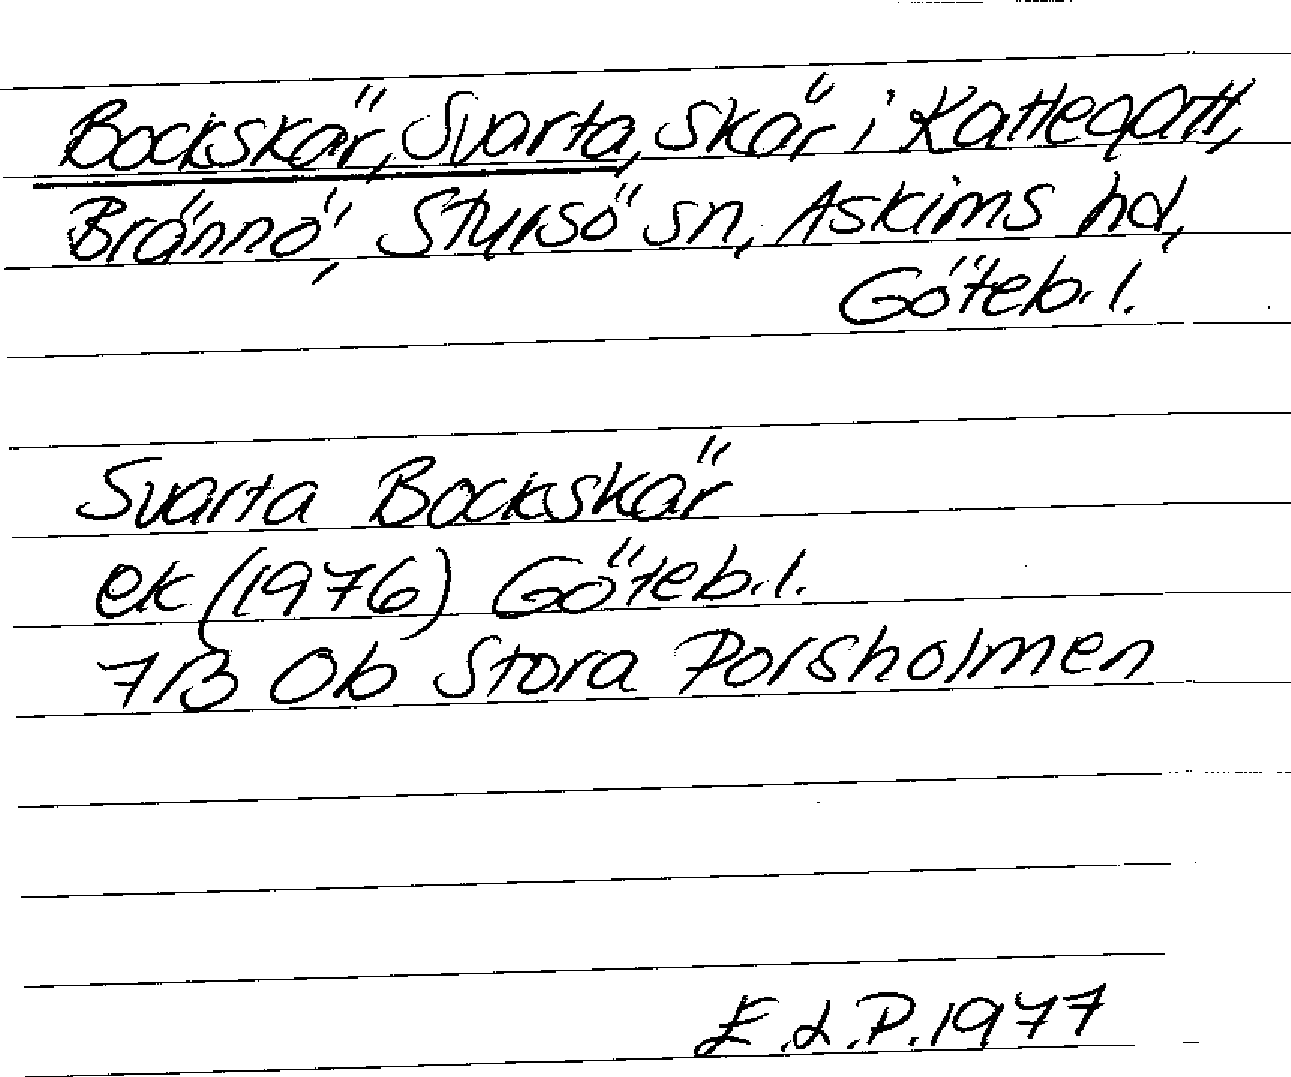 Bockskär, Svarta, skär i Kattegatt,
Brännö, Styrsö sn, Askims hd,
Göteb. l.
Svarta Bockskär
ek (1976) Göteb. l.
7B 0b Stora Porsholmen
E.L.P. 1977